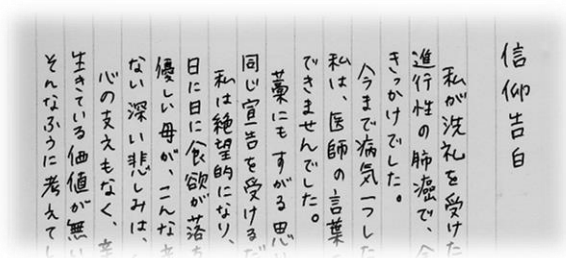 信仰告白
私が洗礼を受けた
進行性の肺癌で、
きっかけでした。
今まで病気一つした
私は、医師の言葉
できませんでした。
藁にもすがる思い
同じ宣告を受けるだ
私は絶望的になり、
日に日に食欲が落ち
優しい母が、こんな
ない深い悲しみは、
心の支えもなく、
生きている価値が無い
そんなふうに考えてし